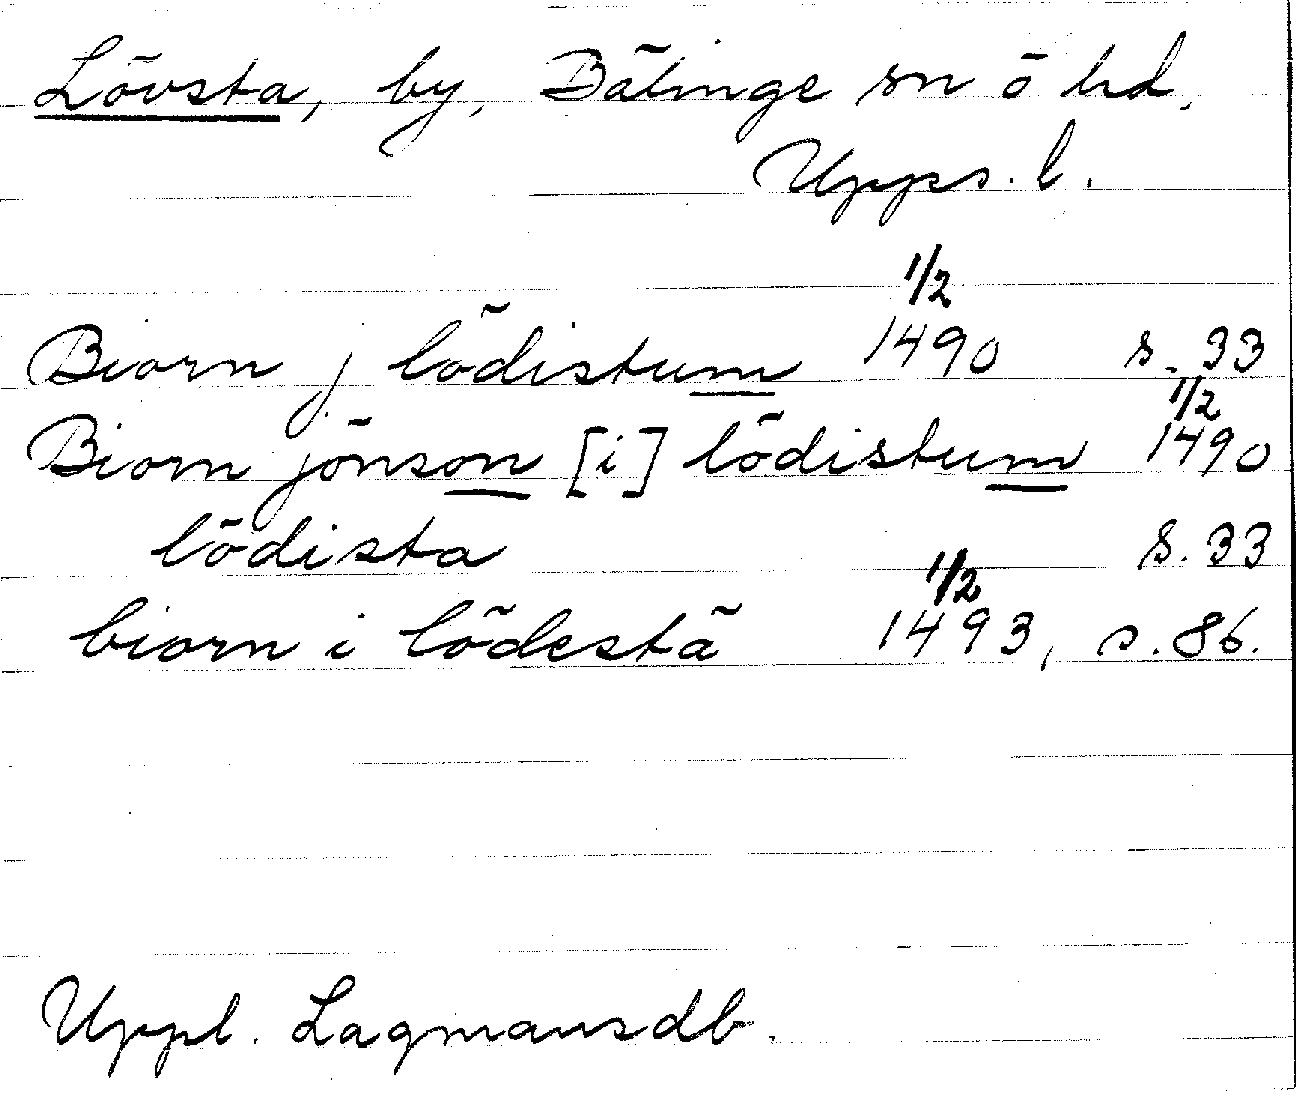 Lövsta, by, Bälinge sn o hd,
Upps. l.
1/2
Biorn j lödistum 1490 s. 33
1/2
Biorn jönson [i] lödistum 1490
lödista s. 33
1/2
biorn i lödestä 1493, s. 86.
Uppl. Lagmansdb.